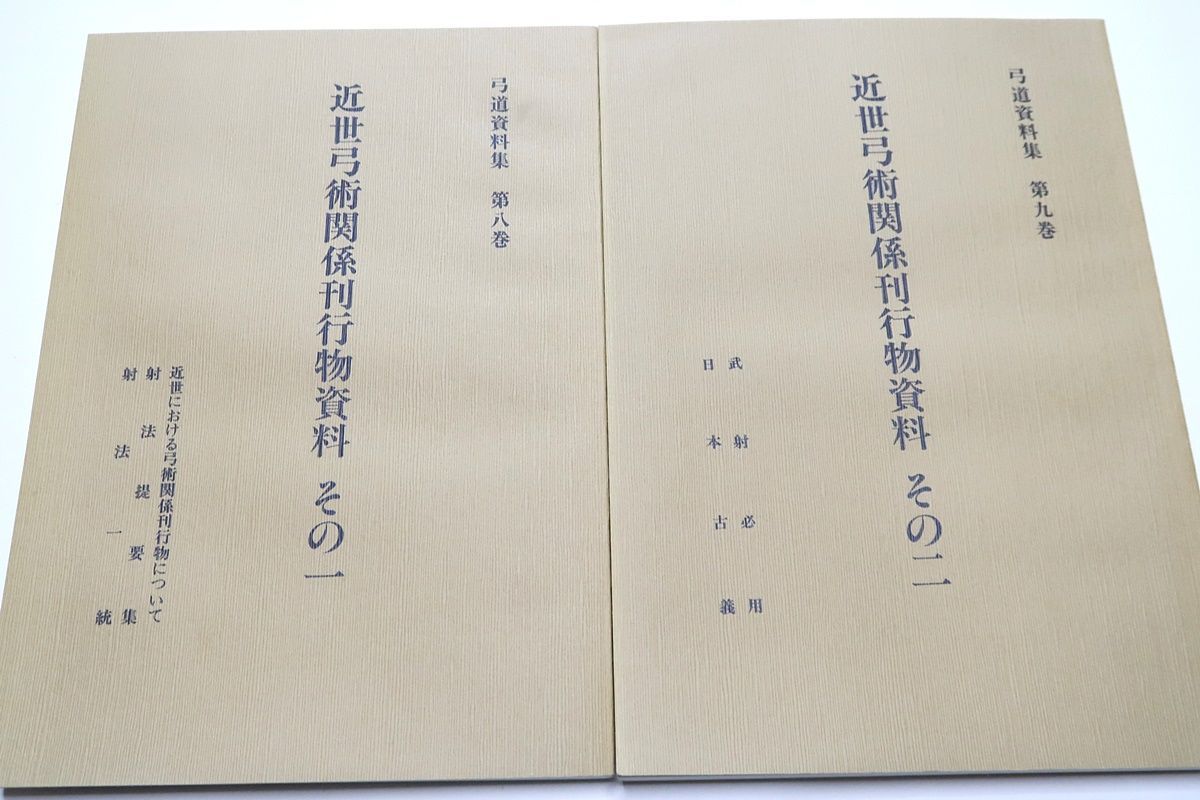 弓道資料集 第八巻
近世弓術関係刊行物資料 その一
近世における弓術関係刊行物について
射法提要集
射法一統
弓道資料集 第九巻
近世弓術関係刊行物資料 その二
武射必用
日本古義